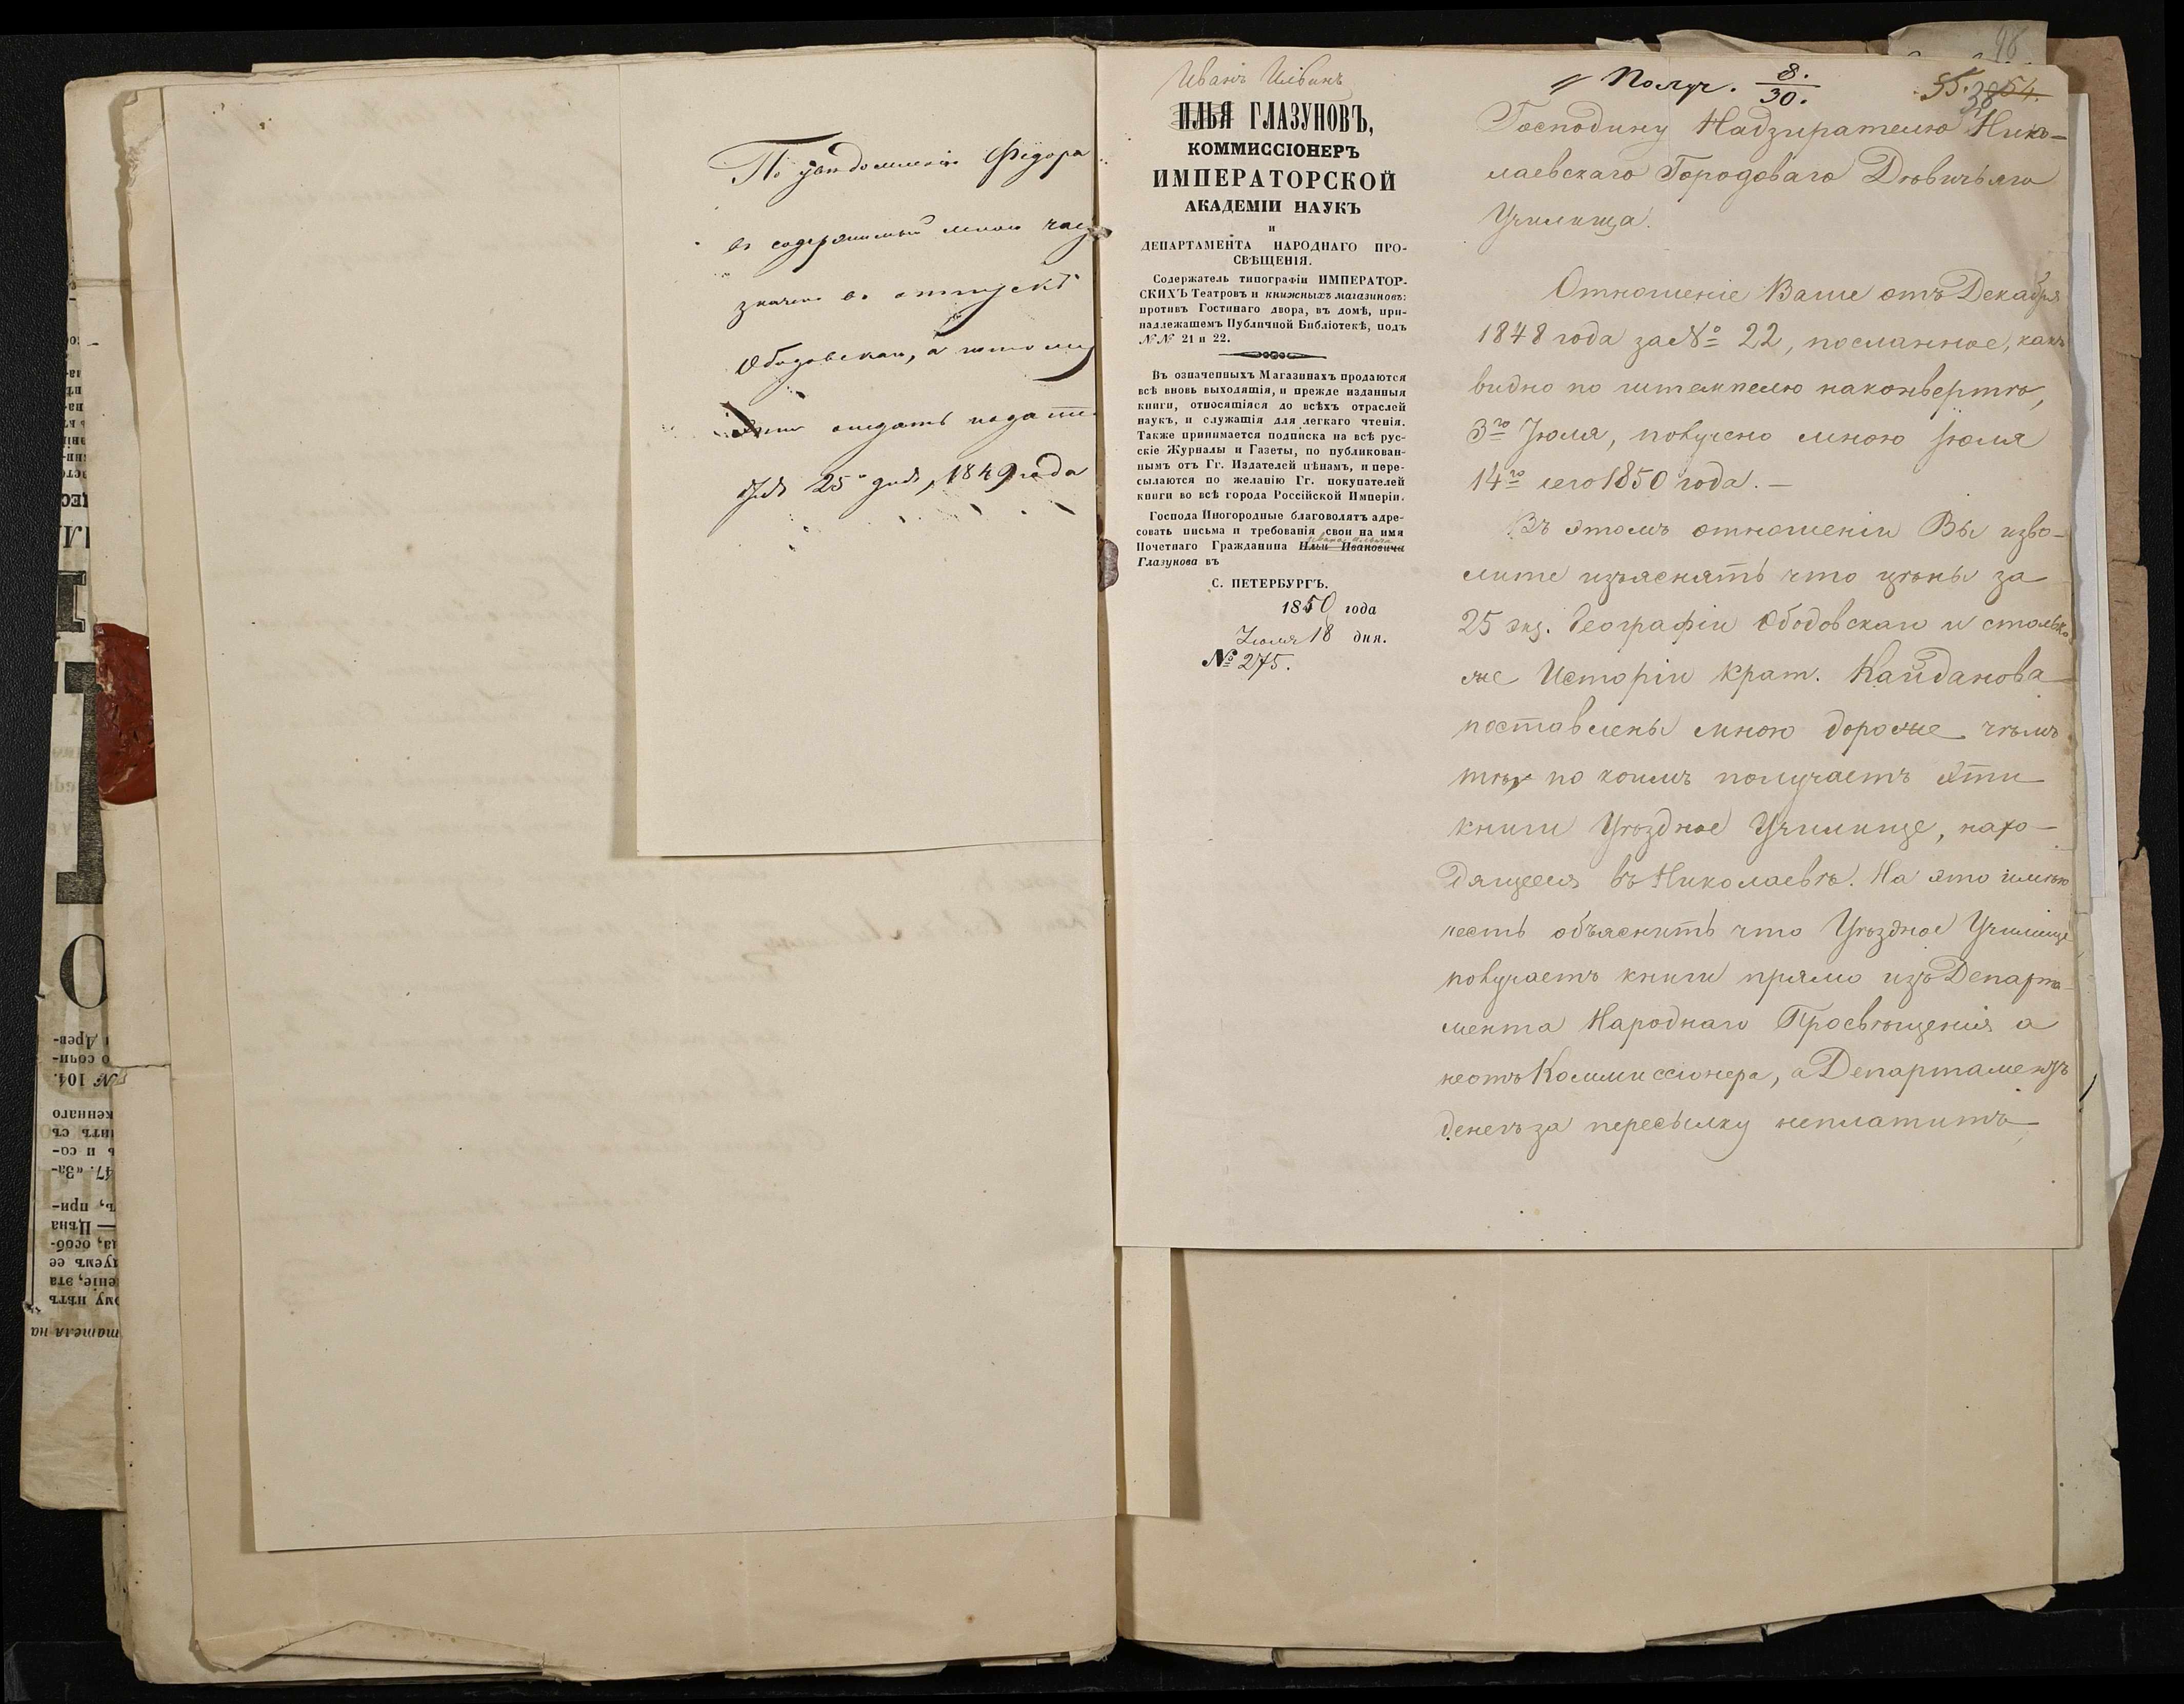 По уведомленію Федора
въ содержимый мною
значено въ отпускѣ
Ободовскаго, а потому
ожидать
25 дня, 1849 года
Иванъ Ильинъ
ИЛЬЯ ГЛАЗУНОВЪ,
КОММИССІОНЕРЪ
ИМПЕРАТОРСКОЙ
АКАДЕМІИ НАУКЪ
И
ДЕПАРТАМЕНТА НАРОДНАГО ПРО-
СВѢЩЕНІЯ.
Содержатель типографіи ИМПЕРАТОР-
СКИХЪ Театровъ и книжныхъ магазиновъ:
противъ Гостинаго двора, въ домѣ, при-
надлежащемъ Публичной Библіотекѣ, подъ
№№ 21 и 22.
Въ означенныхъ Магазинахъ продаются
всѣ вновь выходящія, и прежде изданныя
книги, относящіяся до всѣхъ отраслей
наукъ, и служащія для легкаго чтенія.
Также принимается подписка на всѣ рус-
скіе Журналы и Газеты, по публикован-
нымъ отъ Гг. Издателей цѣнамъ, и пере-
сылаются по желанію Гг. покупателей
книги во всѣ города Россійской Имперіи.
Господа Иногородные благоволятъ адре-
совать письма и требованія свои на имя
Ивана Ильича
Почетнаго Гражданина Ильи Ивановича
Глазунова въ
С. ПЕТЕРБУРГЪ.
1850 года
Іюля 18 дня.
№ 275.
98
Получ. 8./30.
55. 38 54.
Господину Надзирателю Нико-
лаевскаго Городоваго Дѣвичьяго
Училища.
Отношеніе Ваше отъ Декабря
1848 года за № 22, посланное, какъ
видно по штемпелю на конвертѣ,
3го Іюля, получено мною Іюля
14го сего 1850 года. —
Въ этомъ отношеніи Вы изво-
лите изъяснять что цѣны за
25 экз. Географіи Ободовскаго и столько
же Исторіи крат. Кайданова
поставлены мною дороже чѣмъ
тѣ, по коимъ получаетъ эти
книги Уѣздное Училище, нахо-
дящееся въ Николаевѣ. На это имѣю
честь объяснить что Уѣздное Училище
получаетъ книги прямо изъ Департа-
мента Народнаго Просвѣщенія а
не отъ Коммиссіонера, а Департаментъ
денегъ за пересылку неплатитъ